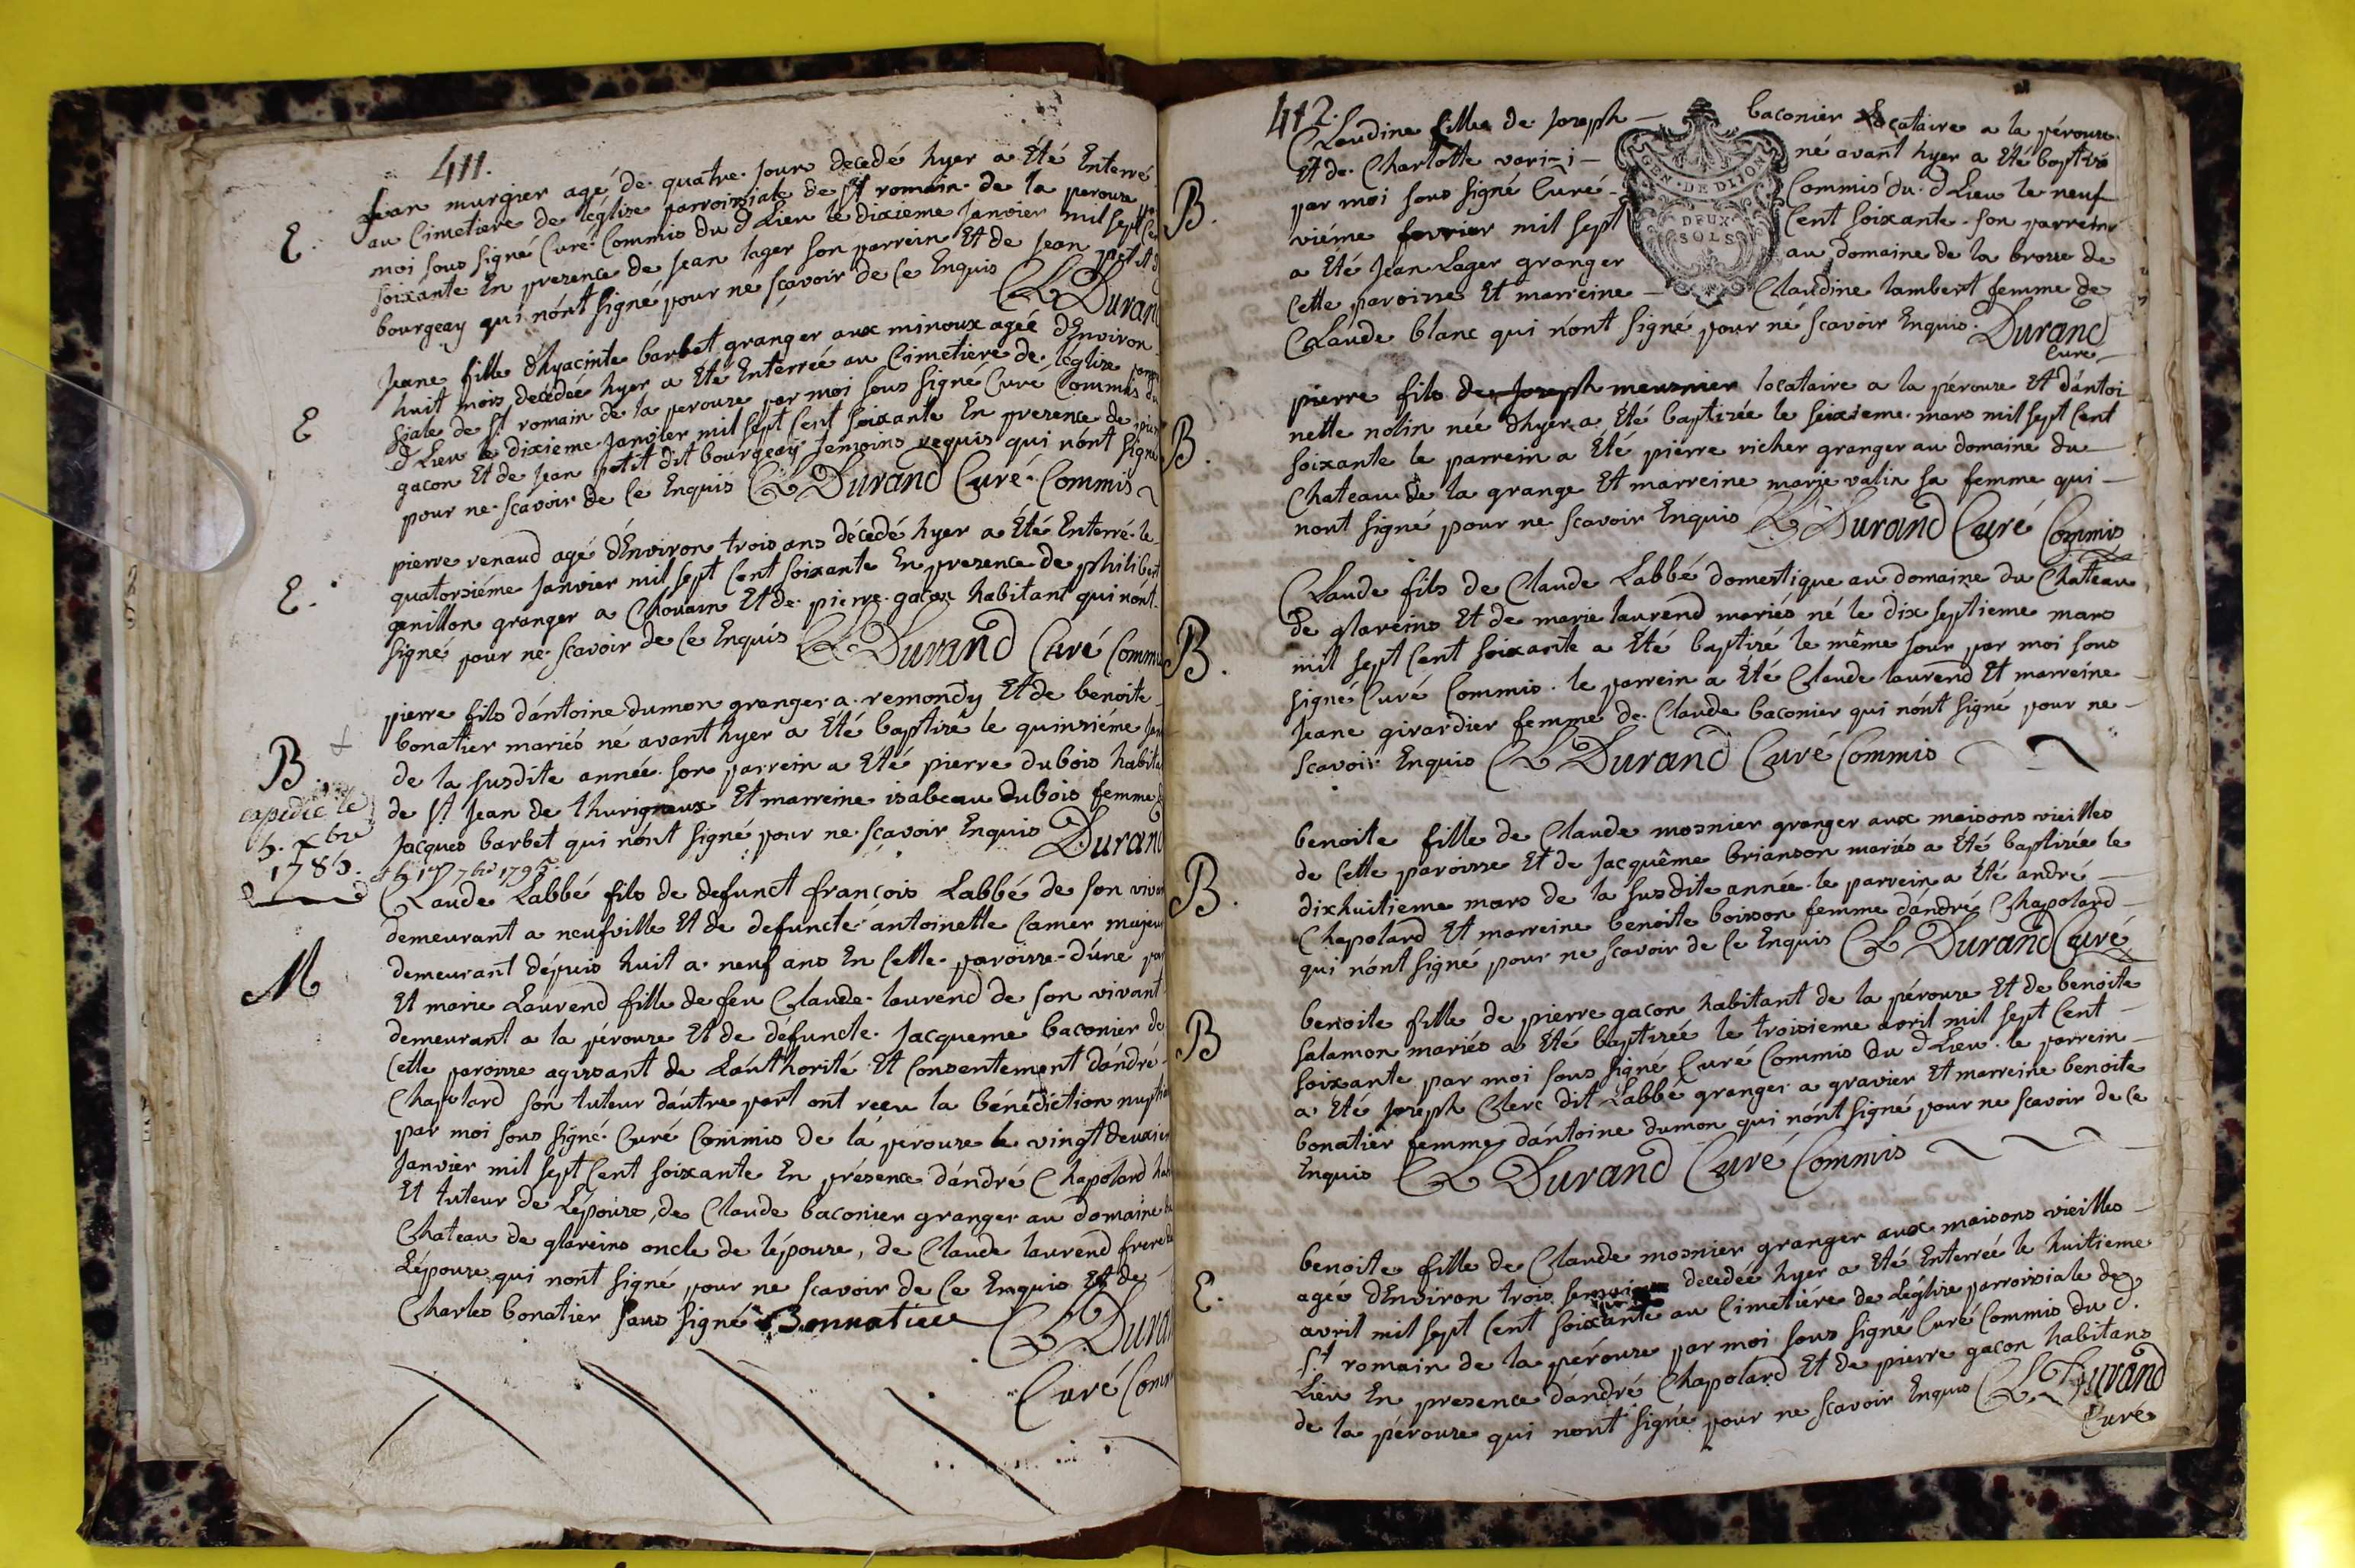 411.
E.
Jean murgier agé de quatre jour decedé hyer a Eté Enterré
au Cimetiere de léglise parroissiale de St romain de la perouze
moi sous signé Curé Commis du d Lieu le dixieme Janvier mil sept
soixante En presence de Jean lager son parrein Et de Jean petit
bourgeay qui nónt signé pour ne sçavoir de Ce Enquis CL Durand
E
Jeane fille dhyacinte barbet granger aux minoux agée dEnviron
huit mois decedée hyer a Eté Enterrée au Cimetiere de léglise
siale de St romain de la perouze par moi sous signé Curé Commis du
d Lieu le dixieme Janvier mil sept Cent soixante En presence de
gacon Et de Jean petit dit bourgeay temoins requis qui nónt signé
pour ne scavoir de Ce Enquis CL Durand Curé Commis
E.
pierre renaud agé dEnviron trois ans décedé hyer a Eté Enterré le
quatorziéme Janvier mil sept Cent soixante En presence de philibert
genillon granger a Chouain Et de pierre gacon habitant qui nónt
signé pour ne scavoir de Ce Enquis CL Durand Curé Commis
B
expedié le
5. xbre
1785.
pierre fils dántoine dumon granger a remondy Et de benoite
bonatier mariés né avant hyer a Eté baptizé le quinziéme
de la susdite année son parrein a Eté pierre dubois
de St Jean de thurigneux Et marreine isabeau dubois femme
Jacques barbet qui nónt signé pour ne sçavoir Enquis Durand
7bre 1793.
M
Claude Labbé fils de defunct françois Labbé de son vivant
demeurant a neufville Et de defuncte antoinette Camer majeur
demeurant dépuis huit a neuf ans En Cette paroisse dúne
Et marie Laurend fille de feu Claude laurend de son vivant
demeurant a la pérouze Et de défuncte Jacqueme baconier de
Cette paroisse agissant de Lauthorité Et Consentement dándré
Chapolard son tuteur dáutre part ont recu la bénédiction
par moi sous signé Curé Commis de la pérouze le vingt
Janvier mil sept Cent soixante En présence dándré Chapolard
Et tuteur de Lépouze, de Claude baconier granger au domaine
Chateau de glareins oncle de lépouze, de Claude laurend frere
Lépouze qui nont signé pour ne scavoir de Ce Enquis Et de
Charles bonatier sous signé Bonnatier CL Durand
Curé
412.
GEN. DE DIJON
DEUX
SOLS
B.
Claudine fille de Joseph baconier Locataire a la pérouze
Et de Charlotte né avant hyer a Eté baptizé
par moi sous signé Curé Commis du d Lieu le neuf
viéme fevrier mil sept Cent soixante son parrein
a Eté Jean Lager granger au domaine de la brosse de
Cette paroisse Et marreine Claudine lambert femme de
Claude blanc qui nónt signé pour né scavoir Enquis. Durand
Curé
B.
pierre fils de Joseph meusnier locataire a la pérouze Et dántoi
nette nolin née dhyer a Eté baptizée le seizieme mars mil sept Cent
soixante le parrein a Eté pierre richer granger au domaine du
Chateau de la grange Et marreine marie valin sa femme qui
nont signé pour ne scavoir Enquis CL Durand Curé Commis
B.
Claude fils de Claude Labbé domestique au domaine du Chateau
de glareins Et de marie laurend mariés né le dix septieme mars
mil sept Cent soixante a Eté baptizé le même jour par moi sous
signé Curé Commis. le parrein a Eté Claude laurend Et marreine
Jeane girardier femme de Claude baconier qui nónt signé pour ne
scavoir Enquis CL Durand Curé Commis
B.
benoite fille de Claude mosnier granger aux maisons vieilles
de Cette paroisse Et de Jacquême brianson mariés a Eté baptizée le
dixhuitieme mars de la susdite année. le parrein a Eté andré
Chapolard Et marreine benoite boisson femme dándré Chapolard
qui nónt signé pour ne scavoir de Ce Enquis CL Durand Curé
B
benoite fille de pierre gacon habitant de la pérouze Et de benoite
Salamon mariés a Eté baptizée le troisieme avril mil sept Cent
soixante par moi sous signé Curé Commis du d Lieu. le parrein
a Eté Joseph Clerc dit Labbé granger a gravier Et marreine benoite
bonatier femme dántoine dumon qui nónt signé pour ne scavoir de Ce
Enquis CL Durand Curé Commis
E.
benoite fille de Claude mosnier granger aux maisons vieilles
agée dEnviron trois decedée hyer a Eté Enterrée le huitieme
avril mil sept Cent soixante au Cimetiére de Léglise parroissiale de
St romain de la pérouze par moi sous signé Curé Commis du d.
Lieu En presence dándré Chapolard Et de pierre gacon habitans
de la pérouze qui nont signé pour ne scavoir Enquis CL Durand
Curé